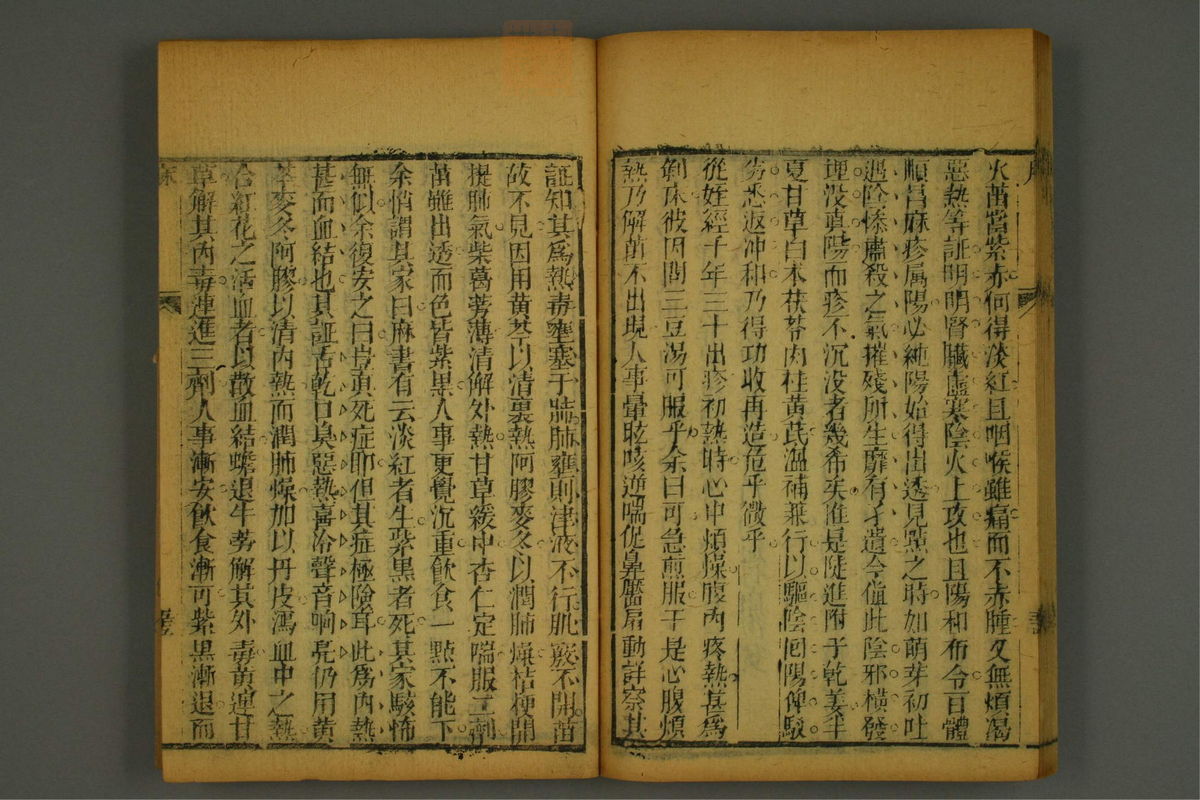 火苗當紫赤何得淡紅且咽喉雖痛而不赤腫又無煩渴
惡熱等証明明腎臟虛寒陰火上攻也且陽和布令百體
順昌麻疹属陽必純陽始得出透見㸃之時如萌芽初吐
遇陰慘肅殺之氣摧殘所生靡有孑遺今值此陰邪橫發
埋没真陽而疹不沉没者幾希矣唯是陡進附子乾姜半
夏甘草白术茯苓肉桂黃芪溫補兼行以驅陰囘陽俾駁
劣悉返冲和乃得功收再造危乎微乎
從姪經千年三十出疹初熱時心中煩燥腹内疼熱甚爲
剉床彼因問三豆湯可服乎余曰可急煎服于是心腹煩
熱乃解苗不出現人事暈眩咳逆喘促鼻靨扇動詳察其
証知其爲熱毒壅塞于肺肺壅則津液不行肌竅不開苗
故不見因用黃芩以清裏熱阿膠麥冬以潤肺燥桔梗開
提肺氣柴葛蒡薄清解外熱甘草緩中杏仁定喘服二劑
苗雖出透而色皆紫黑人事更覺沉重飲食一點不能下
余悄謂其家曰麻書有云淡紅者生紫黑者死其家駭怖
無似余復安之曰豈真死症耶但其症極險耳此爲內熱
甚而血結也其証舌乾口臭惡熱喜冷聲音响亮仍用黃
芩麥冬阿膠以清內熱而潤肺燥加以丹皮瀉血中之熱
合紅花之活血者以散血結蟾退牛蒡解其外毒黃連甘
草解其內毒連進三劑人事漸安飲食漸可紫黑漸退而